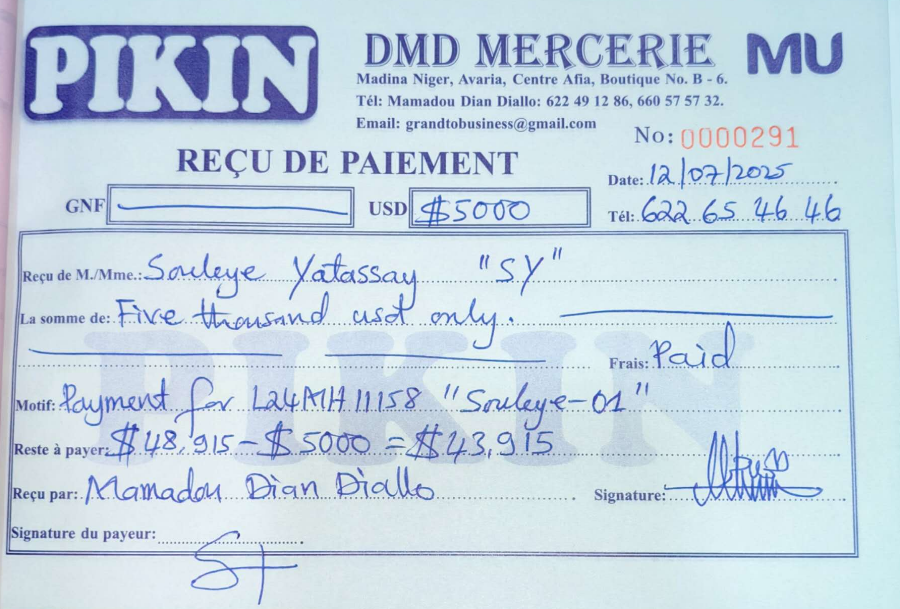 PIKIN
DMD MERCERIE
MU
Madina Niger, Avaria, Centre Afia, Boutique No. B - 6.
Tél: Mamadou Dian Diallo: 622 49 12 86, 660 57 57 32.
Email: grandtobusiness@gmail.com
No: 0000291
REÇU DE PAIEMENT
Date: 12/07/2025
GNF
USD $5000
Tél: 622 65 46 46
Reçu de M./Mme.: Souleye Yatassay "SY"
La somme de: Five thousand usd only.
Frais: Paid
PIKIN
Motif: Payment for L24MH11158 "Souleye-01"
Reste à payer: $48,915-$5000=$43,915
Reçu par: Mamadou Dian Diallo
Signature:
Signature du payeur: